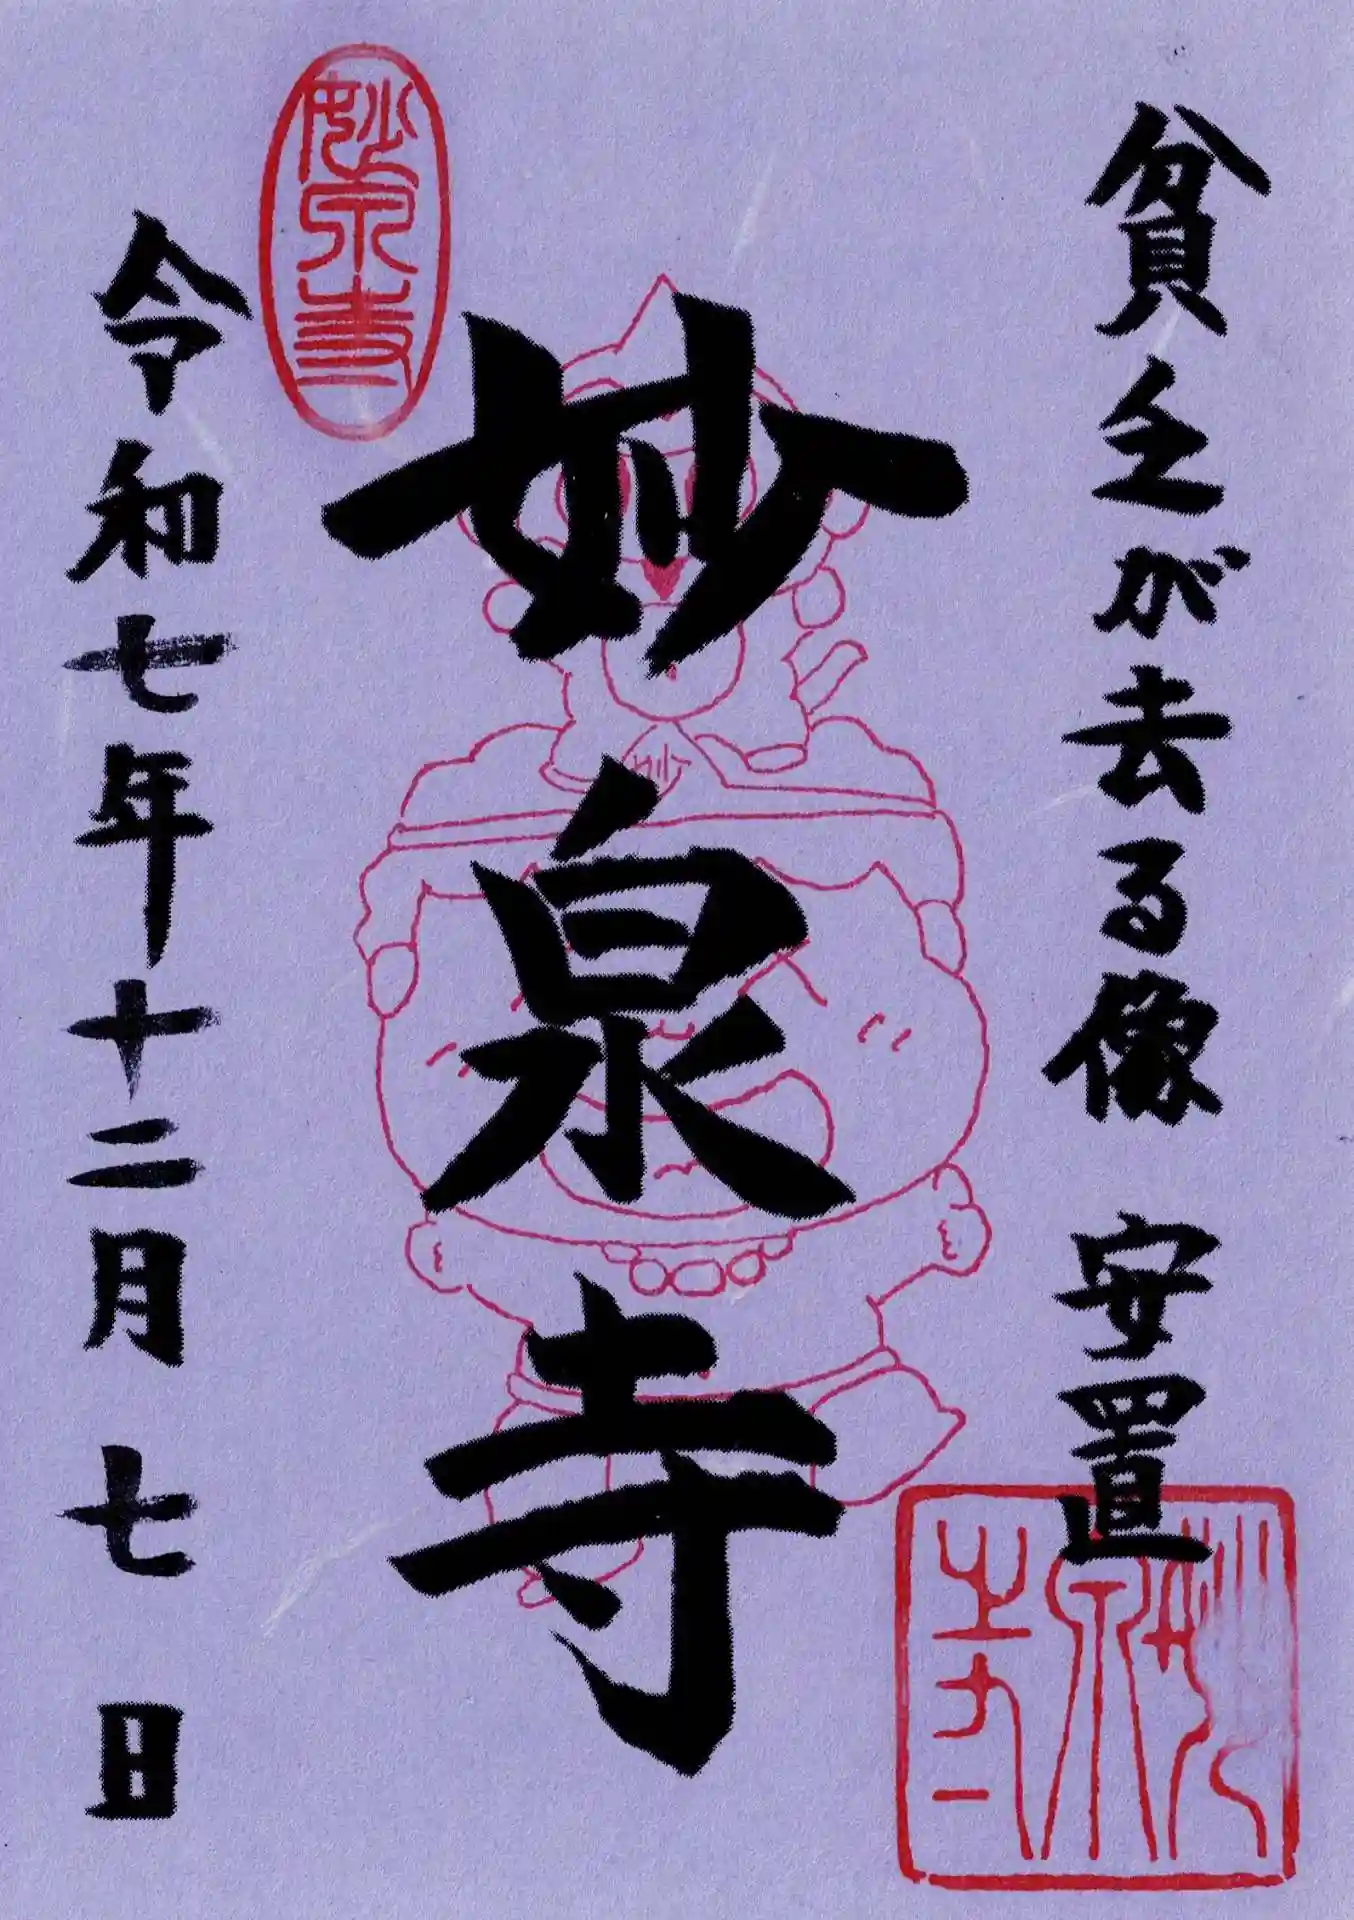 貧乏が去る像 安置
妙泉寺
妙泉寺
令和七年十二月七日
妙
妙泉寺